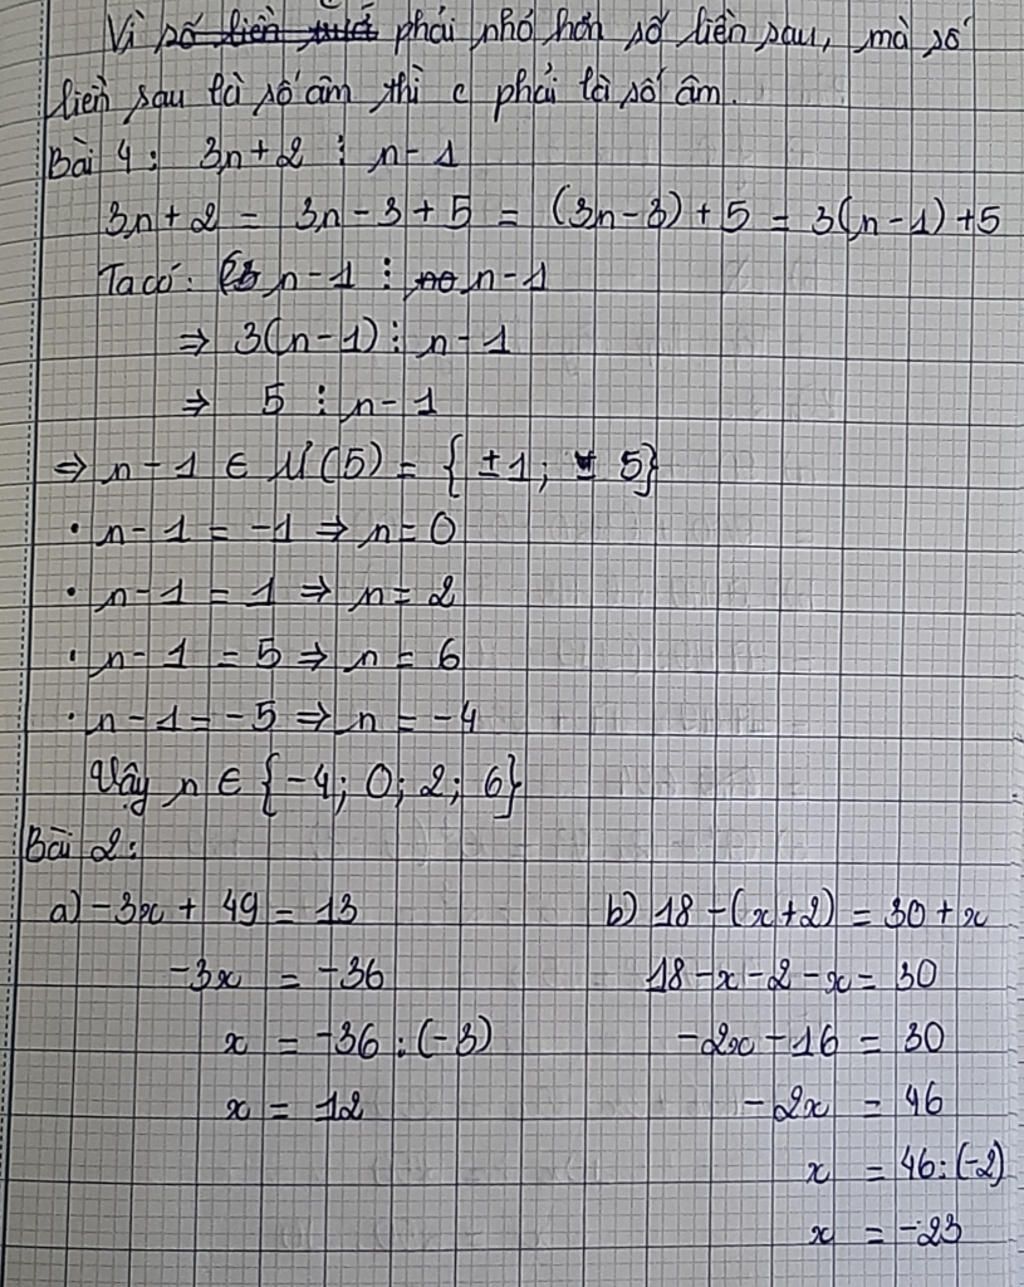 Vì số liền trước c phải nhỏ hơn số liền sau, mà số
liền sau là số âm thì c phải là số âm.
Bài 4: 3n+2 ⋮ n-1
3n+2 = 3n-3+5 = (3n-3)+5 = 3(n-1)+5
Ta có: n-1 ⋮ n-1
⇒ 3(n-1) ⋮ n-1
⇒ 5 ⋮ n-1
⇒ n-1 ∈ Ư(5) = {±1; ±5}
• n-1 = -1 ⇒ n=0
• n-1 = 1 ⇒ n=2
• n-1 = 5 ⇒ n=6
• n-1=-5 ⇒ n=-4
Vậy n ∈ {-4; 0; 2; 6}
Bài 2:
a) -3x + 49 = 13
-3x = -36
x = -36 : (-3)
x = 12
b) 18-(x+2) = 30+x
18-x-2-x = 30
-2x-16 = 30
-2x = 46
x = 46:(-2)
x = -23